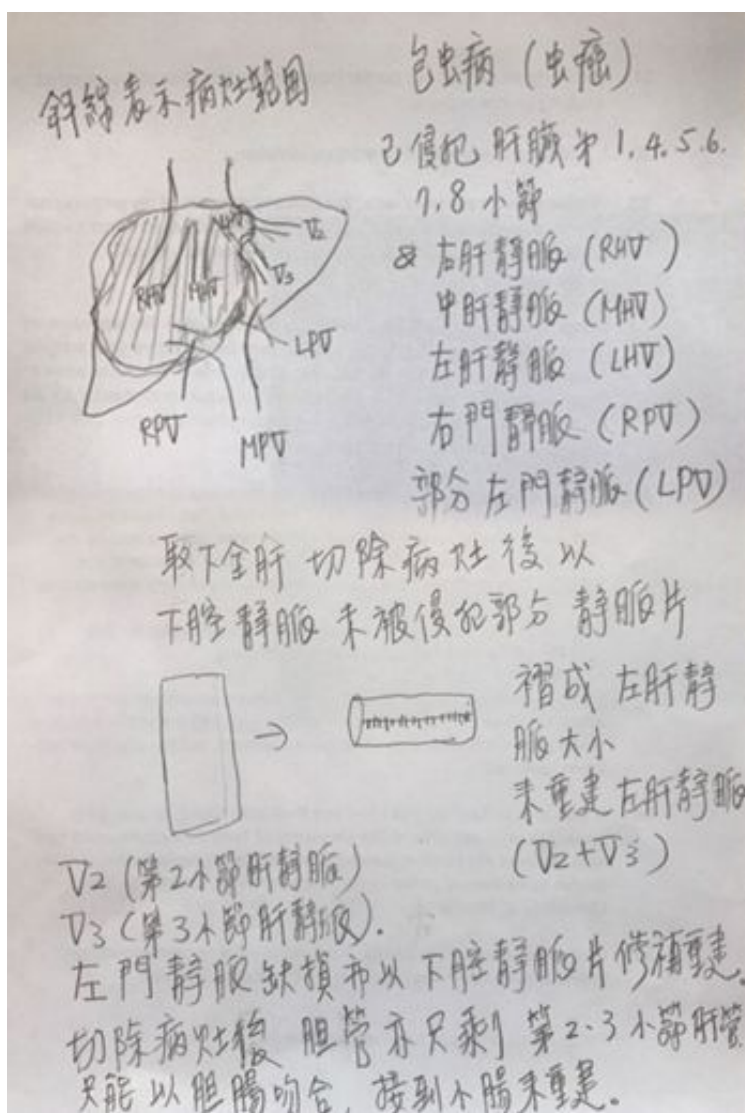 斜線表示病灶範圍
包虫病 (虫癌)
已侵犯肝臟第1.4.5.6.
7.8小節
& 右肝靜脈 (RHV)
中肝靜脈 (MHV)
左肝靜脈 (LHV)
右門靜脈 (RPV)
部分左門靜脈 (LPV)
LHV
V2
V3
RHV
MHV
LPV
RPV
MPV
取下全肝切除病灶後以
下腔靜脈未被侵犯部分靜脈片
褶成左肝靜
脈大小
來重建左肝靜脈
(V2+V3)
V2 (第2小節肝靜脈)
V3 (第3小節肝靜脈).
左門靜脈缺損亦以下腔靜脈片修補重建。
切除病灶後胆管亦只剩第2.3小節肝管
只能以胆腸吻合,接到小腸來重建。